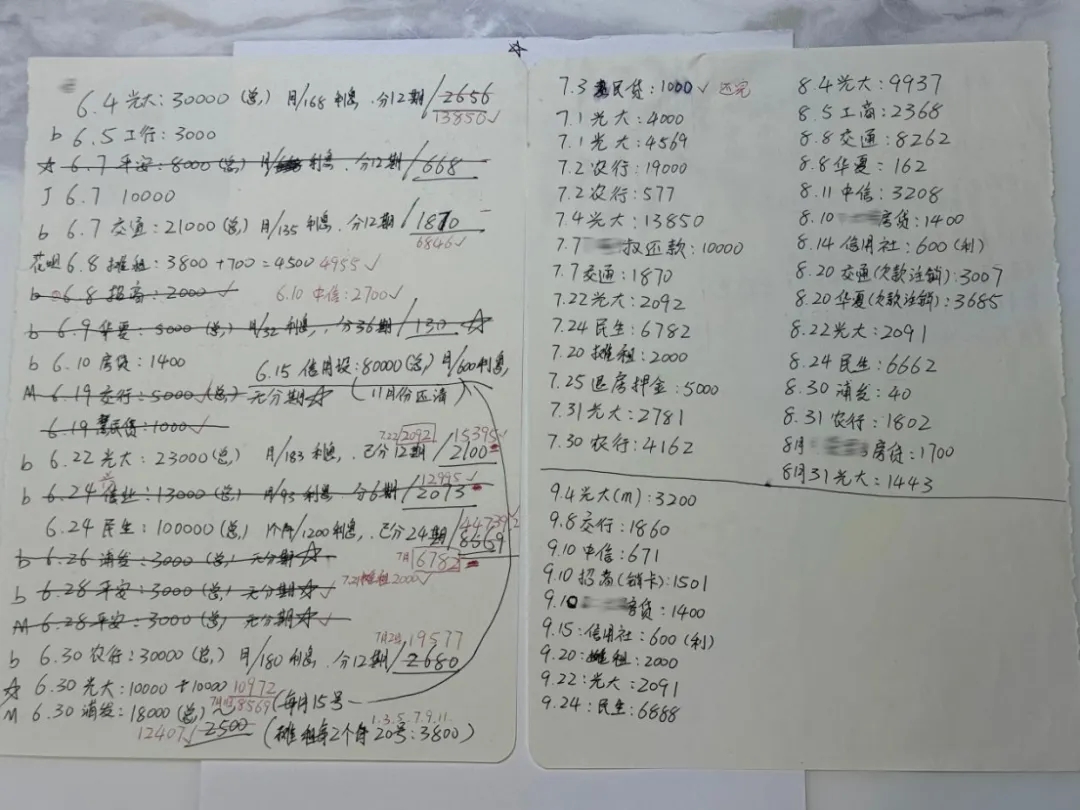 6.4 光大:30000(总) 月/168利息,分12期/2656
13850✓
b 6.5 工行:3000
☆ 6.7 平安:8000(总) 月/利息.分12期/668
J 6.7 10000
b 6.7 交通:21000(总) 月/135利息,分12期/1870
6846✓
花呗 6.8 摊租:3800+700=4500 4955✓
b 6.8 招商:2000✓ 6.10 中信:2700✓
b 6.9 华夏:5000(总) 月/32利息,分36期/130 ☆
b 6.10 房贷:1400
6.15 信用设:80000(总) 月/600利息,
M 6.19 交行:5000(总) 无分期☆ (11月份还清)
6.19 惠民贷:1000✓
7.22/2092 15395✓
b 6.22 光大:23000(总) 月/183利息,已分12期/2100
12995✓
b 6.24 兴业:13000(总) 月/93利息,分6期/2073
6.24 民生:100000(总) 1个月/1200利息,已分24期/8669
44739
b 6.26 浦发:3000(总) 无分期☆
7月 6782
b 6.28 平安:3000(总) 无分期☆✓
7.21摊租2000✓
M 6.28 平安:3000(总) 无分期☆✓
7月2日,19577
b 6.30 农行:30000(总) 月/180利息,分12期/2680
☆ 6.30 光大:10000+10000 10972
8569 (每月15号
M 6.30 浦发:18000(总)
12407✓ 2500
1.3.5.7.9.11
(摊租每2个月20号:3800)
☆
7.3 惠民贷:1000✓ 还完
7.1 光大:4000
7.1 光大:4569
7.2 农行:19000
7.2 农行:577
7.4 光大:13850
7.7 叔还款:10000
7.7 交通:1870
7.22 光大:2092
7.24 民生:6782
7.20 摊租:2000
7.25 退房押金:5000
7.31 光大:2781
7.30 农行:4162
8.4 光大:9937
8.5 工商:2368
8.8 交通:8262
8.8 华夏:162
8.11 中信:3208
8.10 房贷:1400
8.14 信用社:600(利)
8.20 交通(欠款注销):3007
8.20 华夏(欠款注销):3685
8.22 光大:2091
8.24 民生:6662
8.30 浦发:40
8.31 农行:1802
8月 房贷:1700
8月31 光大:1443
9.4 光大(m):3200
9.8 交行:1860
9.10 中信:671
9.10 招商(销卡):1501
9.10 房贷:1400
9.15:信用社:600(利)
9.20:摊租:2000
9.22:光大:2091
9.24:民生:6888